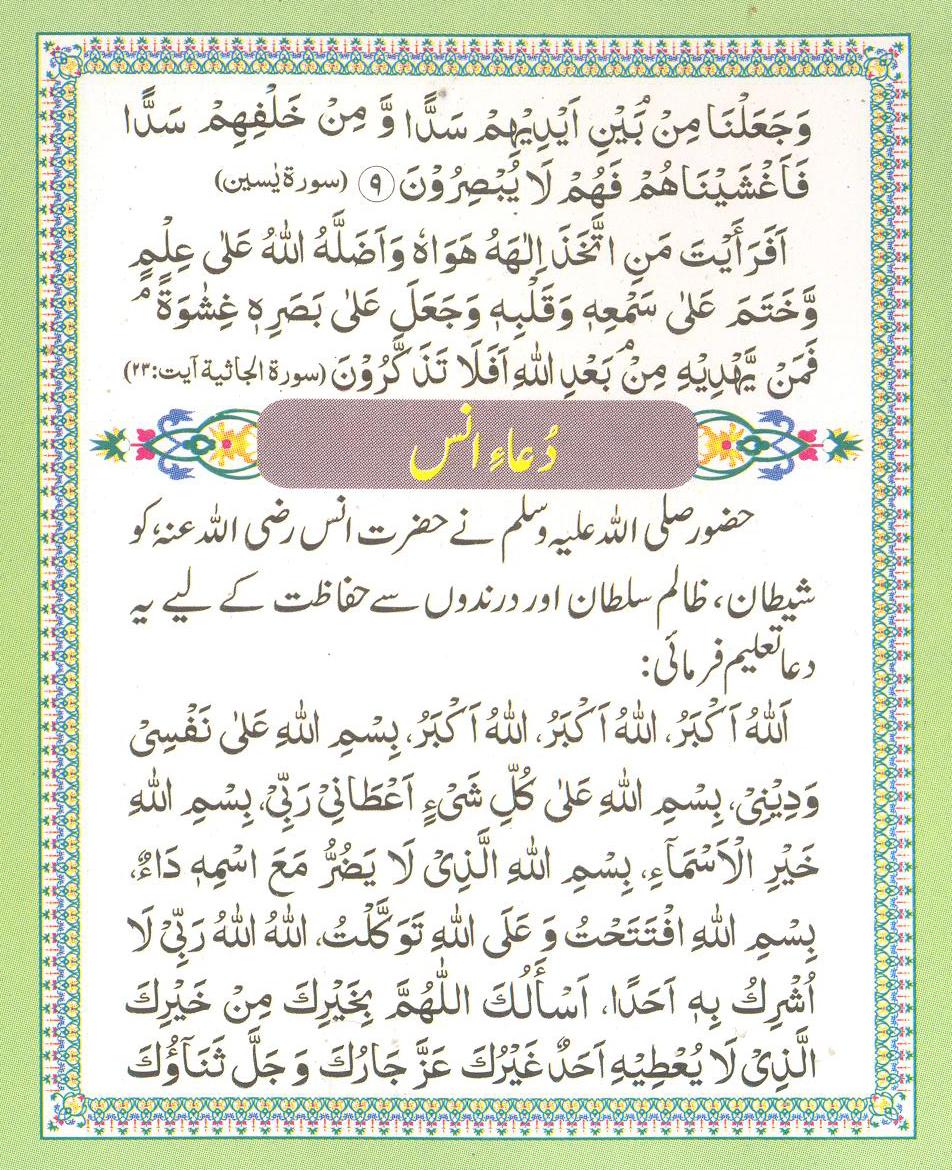 وَجَعَلْنَا مِنْۢ بَيْنِ اَيْدِيْهِمْ سَدًّا وَّ مِنْ خَلْفِهِمْ سَدًّا
فَاَغْشَيْنَاهُمْ فَهُمْ لَا يُبْصِرُوْنَ ۹ (سورۃ یٰسین)
اَفَرَأَيْتَ مَنِ اتَّخَذَ اِلٰهَهُ هَوَاهُ وَاَضَلَّهُ اللّٰهُ عَلٰى عِلْمٍ
وَّخَتَمَ عَلٰى سَمْعِهٖ وَقَلْبِهٖ وَجَعَلَ عَلٰى بَصَرِهٖ غِشٰوَةً ۢ
فَمَنْ يَّهْدِيْهِ مِنْۢ بَعْدِ اللّٰهِ اَفَلَا تَذَكَّرُوْنَ (سورة الجاثية آیت:۲۳)
دُعاءِ انس
حضور صلی اللہ علیہ وسلم نے حضرت انس رضی اللہ عنہ، کو
شیطان، ظالم سلطان اور درندوں سے حفاظت کے لیے یہ
دعا تعلیم فرمائی:
اَللّٰهُ اَكْبَرُ، اَللّٰهُ اَكْبَرُ، اَللّٰهُ اَكْبَرُ، بِسْمِ اللّٰهِ عَلٰى نَفْسِىْ
وَدِيْنِىْ، بِسْمِ اللّٰهِ عَلٰى كُلِّ شَىْءٍ اَعْطَانِىْ رَبِّىْ، بِسْمِ اللّٰهِ
خَيْرِ الْاَسْمَآءِ، بِسْمِ اللّٰهِ الَّذِىْ لَا يَضُرُّ مَعَ اسْمِهٖ دَاءٌ،
بِسْمِ اللّٰهِ افْتَتَحْتُ وَ عَلَى اللّٰهِ تَوَكَّلْتُ، اَللّٰهُ اَللّٰهُ رَبِّىْ لَا
اُشْرِكُ بِهٖ اَحَدًا، اَسْأَلُكَ اللّٰهُمَّ بِخَيْرِكَ مِنْ خَيْرِكَ
الَّذِىْ لَا يُعْطِيْهِ اَحَدٌ غَيْرُكَ عَزَّ جَارُكَ وَ جَلَّ ثَنَآؤُكَ